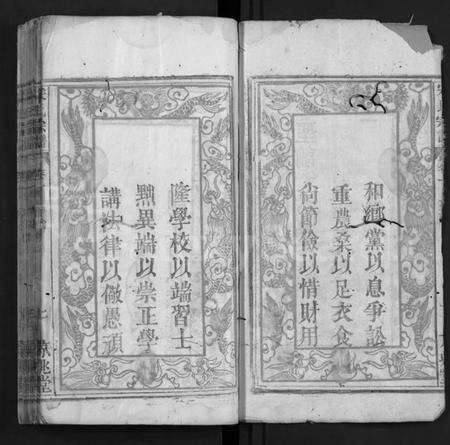 和鄉黨以息爭訟
重農桑以足衣食
尚節儉以惜財用
隆學校以端習士
黜異端以崇正學
講法律以儆愚頑